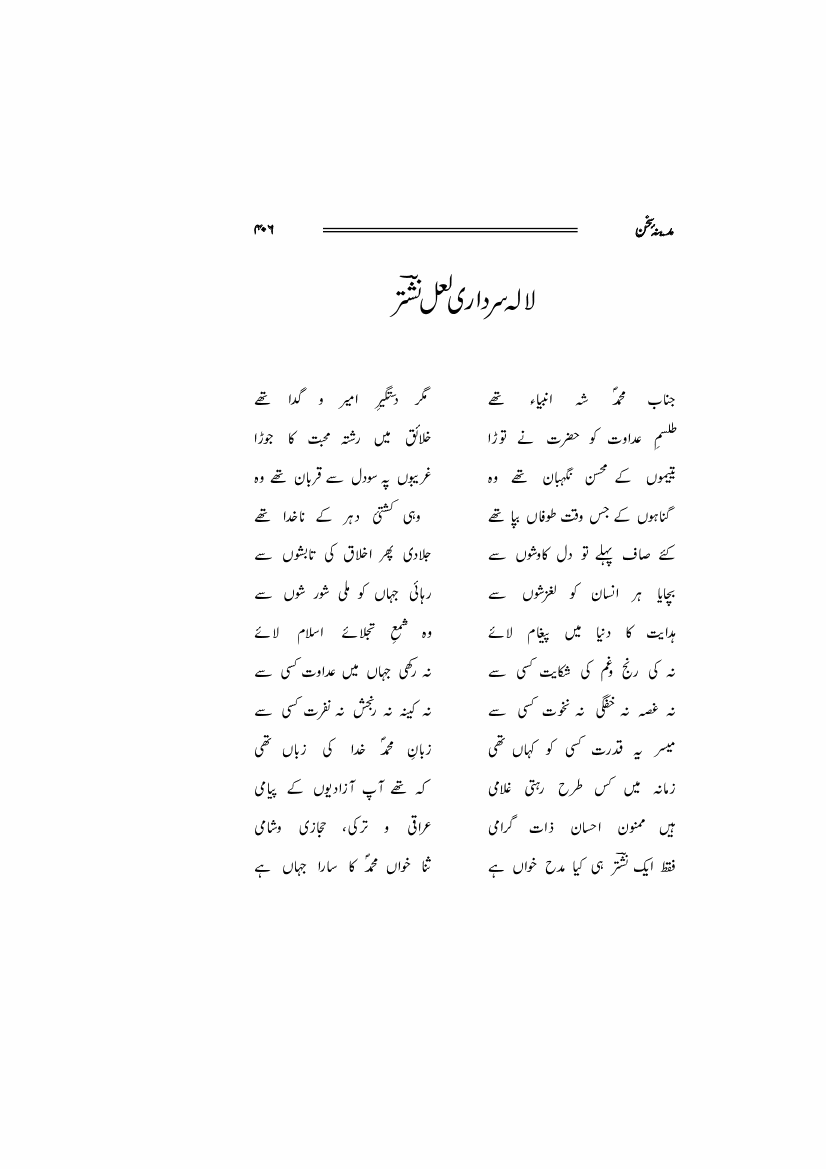 مدینہ سخن ۴۰۶
لالہ سرداری لعل نشترؔ
جناب محمدؐ شہ انبیاء تھے مگر دستگیرِ امیر و گدا تھے
طلسمِ عداوت کو حضرت نے توڑا خلائق میں رشتہ محبت کا جوڑا
یتیموں کے محسن نگہبان تھے وہ غریبوں پہ سودل سے قربان تھے وہ
گناہوں کے جس وقت طوفاں بپا تھے وہی کشتیٔ دہر کے ناخدا تھے
کئے صاف پہلے تو دل کاوشوں سے جلادی پھر اخلاق کی تابشوں سے
بچایا ہر انسان کو لغزشوں سے رہائی جہاں کو ملی شور شوں سے
ہدایت کا دنیا میں پیغام لائے وہ شمعِ تجلائے اسلام لائے
نہ کی رنج وغم کی شکایت کسی سے نہ رکھی جہاں میں عداوت کسی سے
نہ غصہ نہ خفگی نہ نخوت کسی سے نہ کینہ نہ رنجش نہ نفرت کسی سے
میسر یہ قدرت کسی کو کہاں تھی زبانِ محمدؐ خدا کی زباں تھی
زمانہ میں کس طرح رہتی غلامی کہ تھے آپ آزادیوں کے پیامی
ہیں ممنون احسان ذات گرامی عراقی و ترکی، حجازی وشامی
فقط ایک نشترؔ ہی کیا مدح خواں ہے ثنا خواں محمدؐ کا سارا جہاں ہے